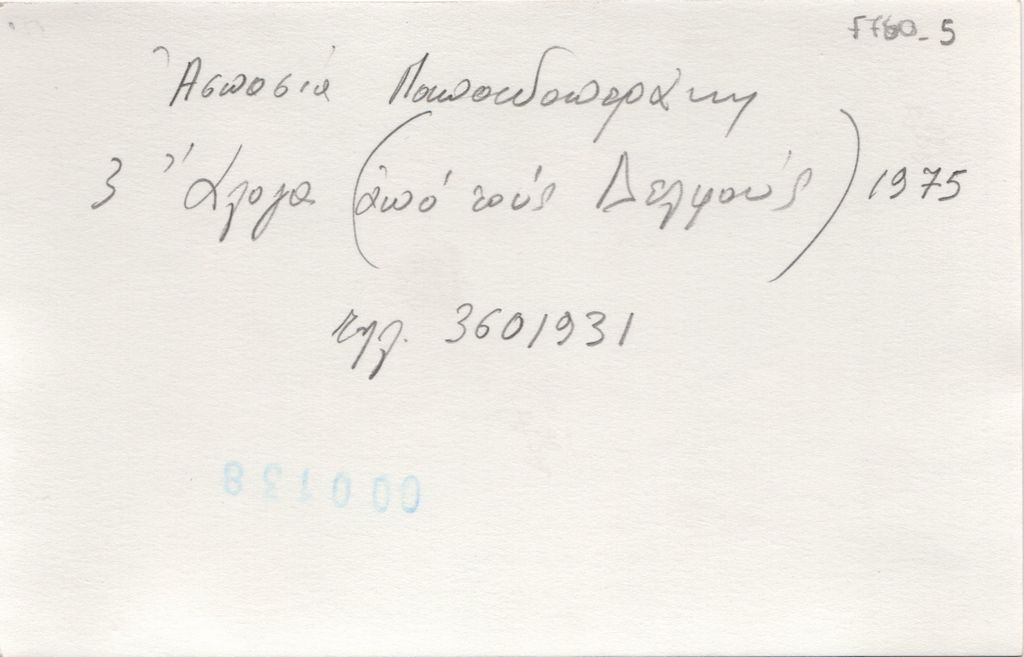 5
Ἀσπασία Παπαδοπεράκη
3 Ἄλογα (ἀπό τούς Δελφούς) 1975
τηλ. 3601931
000138